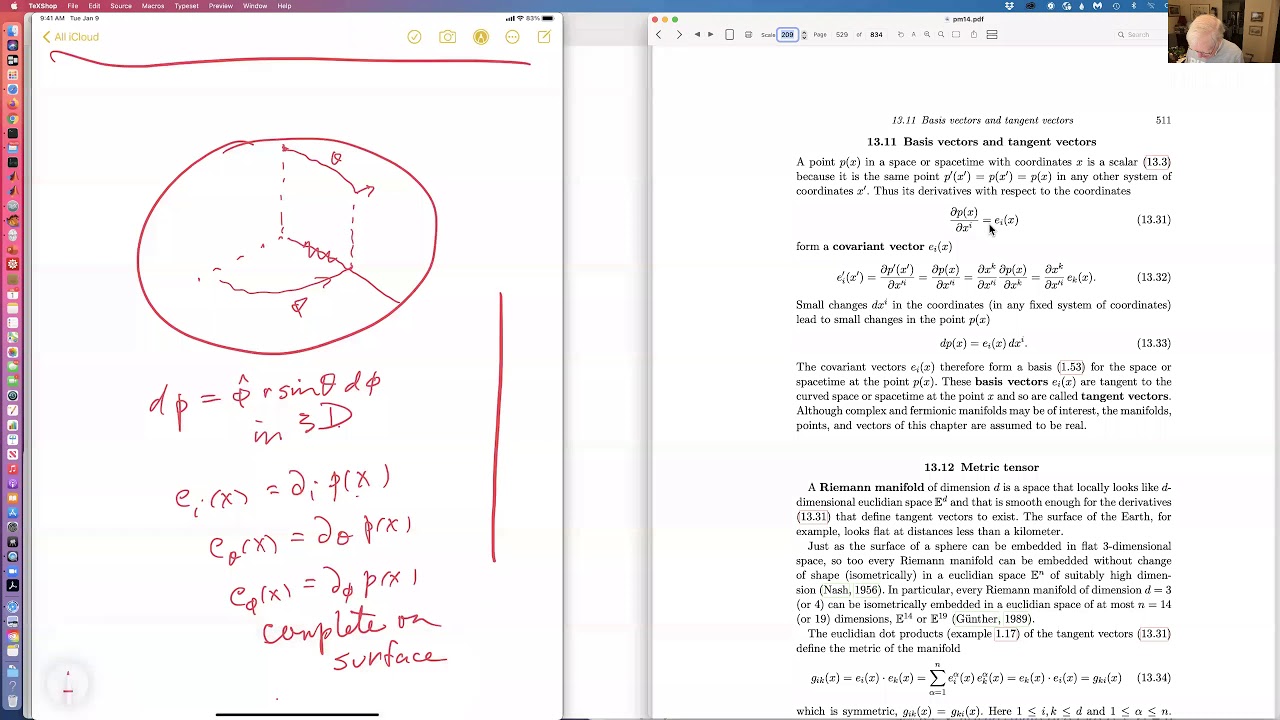 TeXShop File Edit Source Macros Typeset Preview Window Help
9:41 AM Tue Jan 9
83%
All iCloud
θ
φ
dp = φ̂ r sinθ dφ
in 3D
e_i(x) = ∂_i p(x)
e_θ(x) = ∂_θ p(x)
e_φ(x) = ∂_φ p(x)
complete on
surface
pm14.pdf
Scale 209 Page 529 of 834
Search
13.11 Basis vectors and tangent vectors 511
13.11 Basis vectors and tangent vectors
A point p(x) in a space or spacetime with coordinates x is a scalar (13.3)
because it is the same point p′(x′) = p(x′) = p(x) in any other system of
coordinates x′. Thus its derivatives with respect to the coordinates
∂p(x)/∂xⁱ = e_i(x) (13.31)
form a covariant vector e_i(x)
e′_i(x′) = ∂p′(x′)/∂x′ⁱ = ∂p(x)/∂x′ⁱ = ∂xᵏ/∂x′ⁱ ∂p(x)/∂xᵏ = ∂xᵏ/∂x′ⁱ e_k(x). (13.32)
Small changes dxⁱ in the coordinates (in any fixed system of coordinates)
lead to small changes in the point p(x)
dp(x) = e_i(x) dxⁱ. (13.33)
The covariant vectors e_i(x) therefore form a basis (1.53) for the space or
spacetime at the point p(x). These basis vectors e_i(x) are tangent to the
curved space or spacetime at the point x and so are called tangent vectors.
Although complex and fermionic manifolds may be of interest, the manifolds,
points, and vectors of this chapter are assumed to be real.
13.12 Metric tensor
A Riemann manifold of dimension d is a space that locally looks like d-
dimensional euclidian space 𝔼ᵈ and that is smooth enough for the derivatives
(13.31) that define tangent vectors to exist. The surface of the Earth, for
example, looks flat at distances less than a kilometer.
Just as the surface of a sphere can be embedded in flat 3-dimensional
space, so too every Riemann manifold can be embedded without change
of shape (isometrically) in a euclidian space 𝔼ⁿ of suitably high dimen-
sion (Nash, 1956). In particular, every Riemann manifold of dimension d = 3
(or 4) can be isometrically embedded in a euclidian space of at most n = 14
(or 19) dimensions, 𝔼¹⁴ or 𝔼¹⁹ (Günther, 1989).
The euclidian dot products (example 1.17) of the tangent vectors (13.31)
define the metric of the manifold
g_ik(x) = e_i(x) · e_k(x) = ∑_{α=1}^{n} e_i^α(x) e_k^α(x) = e_k(x) · e_i(x) = g_ki(x) (13.34)
which is symmetric, g_ik(x) = g_ki(x). Here 1 ≤ i, k ≤ d and 1 ≤ α ≤ n.